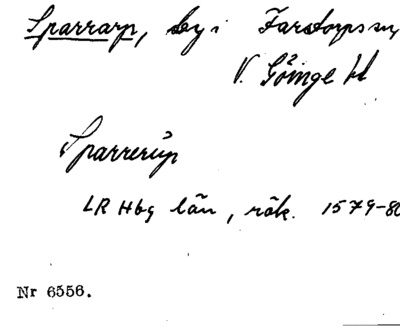 Sparrarp, by i Farstorps sn,
V. Göinge hd
Sparrerup
LR Hbg län, räk. 1579-80
Nr 6556.